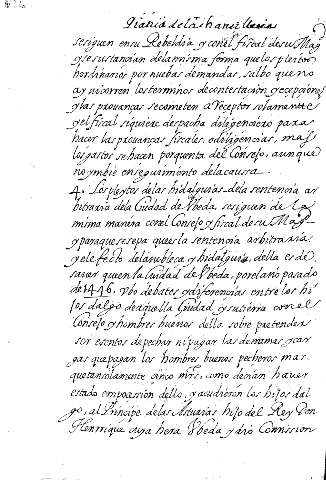 sesiguen en su Rebeldia y con el fiscal de su Mag
y se sustancian de la misma forma que los pleitos
hordinarios por nuebas demandas, salbo que no
ay ni corren los terminos de contestacion y excepciones
y las provanças se cometen a Receptor solamente
y el fiscal siquiere despacha diligenciero para
hacer las provanças fiscales o diligencias, mas
los gastos se hacen por quenta del Consejo, aunque
no ymbie en seguimiento de la causa.
4. Los pleytos de las hidalguias de la sentencia ar
bitraria de la Ciudad de Vbeda, se siguen de la
misma manera con el Consejo y fiscal de su Mag
y para que se sepa que es la sentencia arbitraria
y el efecto de la nobleça y hidalguia della es de
saver que en la Ciudad de Vbeda, por el año pasado
de 1446. Vbo debates y diferencias entre los hi
jos dalgo de aquella Ciudad, y su tierra con el
Consejo y hombres buenos della sobre pretender
ser esentos de pechar ni pagar las derramas y car
gas que pagan los hombres buenos pecheros mas
que tan solamente cinco mrs, como decian haver
estado en posesion dello, y acudieron los hijos dal
go, al Principe de las Asturias hijo del Rey Don
Henrrique cuya hera Vbeda y dio Commission